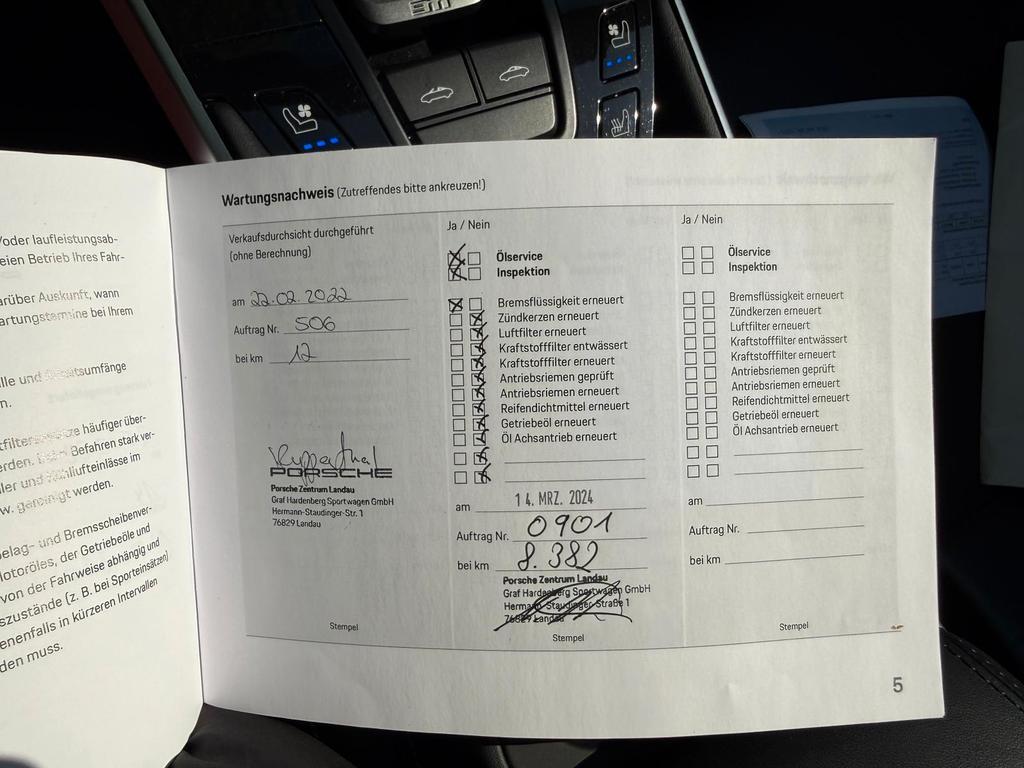 /oder laufleistungsab-
eien Betrieb Ihres Fahr-
arüber Auskunft, wann
artungstermine bei Ihrem
n.
häufiger über-
Befahren stark ver-
im
gereinigt werden.
elag- und Bremsscheibenver-
Motoröles, der Getriebeöle und
von der Fahrweise abhängig und
szustände (z. B. bei Sporteinsätzen)
enenfalls in kürzeren Intervallen
den muss.
Wartungsnachweis (Zutreffendes bitte ankreuzen!)
Verkaufsdurchsicht durchgeführt
(ohne Berechnung)
am 22.02.2022
Auftrag Nr. 506
bei km 12
PORSCHE
Porsche Zentrum Landau
Graf Hardenberg Sportwagen GmbH
Hermann-Staudinger-Str. 1
76829 Landau
Stempel
Ja / Nein
Ölservice
Inspektion
Bremsflüssigkeit erneuert
Zündkerzen erneuert
Luftfilter erneuert
Kraftstofffilter entwässert
Kraftstofffilter erneuert
Antriebsriemen geprüft
Antriebsriemen erneuert
Reifendichtmittel erneuert
Getriebeöl erneuert
Öl Achsantrieb erneuert
am 14. MRZ. 2024
Auftrag Nr. 0901
bei km 8.382
Porsche Zentrum Landau
Graf Hardenberg Sportwagen GmbH
Hermann-Staudinger-Straße 1
76829 Landau
Stempel
Ja / Nein
Ölservice
Inspektion
Bremsflüssigkeit erneuert
Zündkerzen erneuert
Luftfilter erneuert
Kraftstofffilter entwässert
Kraftstofffilter erneuert
Antriebsriemen geprüft
Antriebsriemen erneuert
Reifendichtmittel erneuert
Getriebeöl erneuert
Öl Achsantrieb erneuert
am
Auftrag Nr.
bei km
Stempel
5